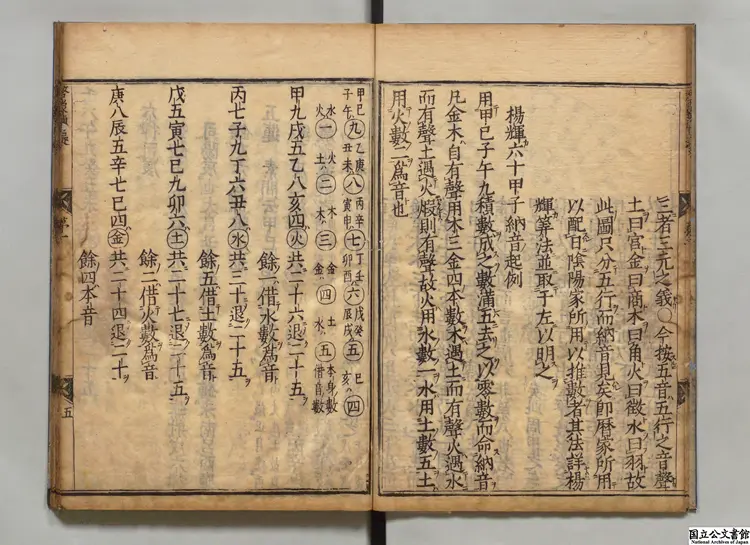 三者三元之義〇今按五音五行之音聲
土曰宮金曰商木曰角火曰徵水曰羽故
此圖只分五行而納音見矣即曆家所用
以配日陰陽家所用以推數者其法詳楊
輝筭法並取于左以明之
楊輝六十甲子納音起例
用甲巳子午九積數成之數滿五去之以零數而命納音
凡金木自有聲用木三金四本數水遇土而有聲火遇水
而有聲土遇火煆則有聲故火用水數一水用土數五土
用火數二爲音也
甲巳子午九乙庚丑未八丙辛寅申七丁壬卯酉六戊癸辰戌五巳亥四
水火一火土二木木三金金四土水五本身數借音數
甲九戌五乙八亥四火共二十六退二十五
餘一借水數爲音
丙七子九丁六丑八水共三十退二十五
餘五借土數爲音
戊五寅七巳九卯六土共二十七退二十五
餘二借火數爲音
庚八辰五辛七巳四金共二十四退二十
餘四本音
第一
五
国立公文書館
National Archives of Japan